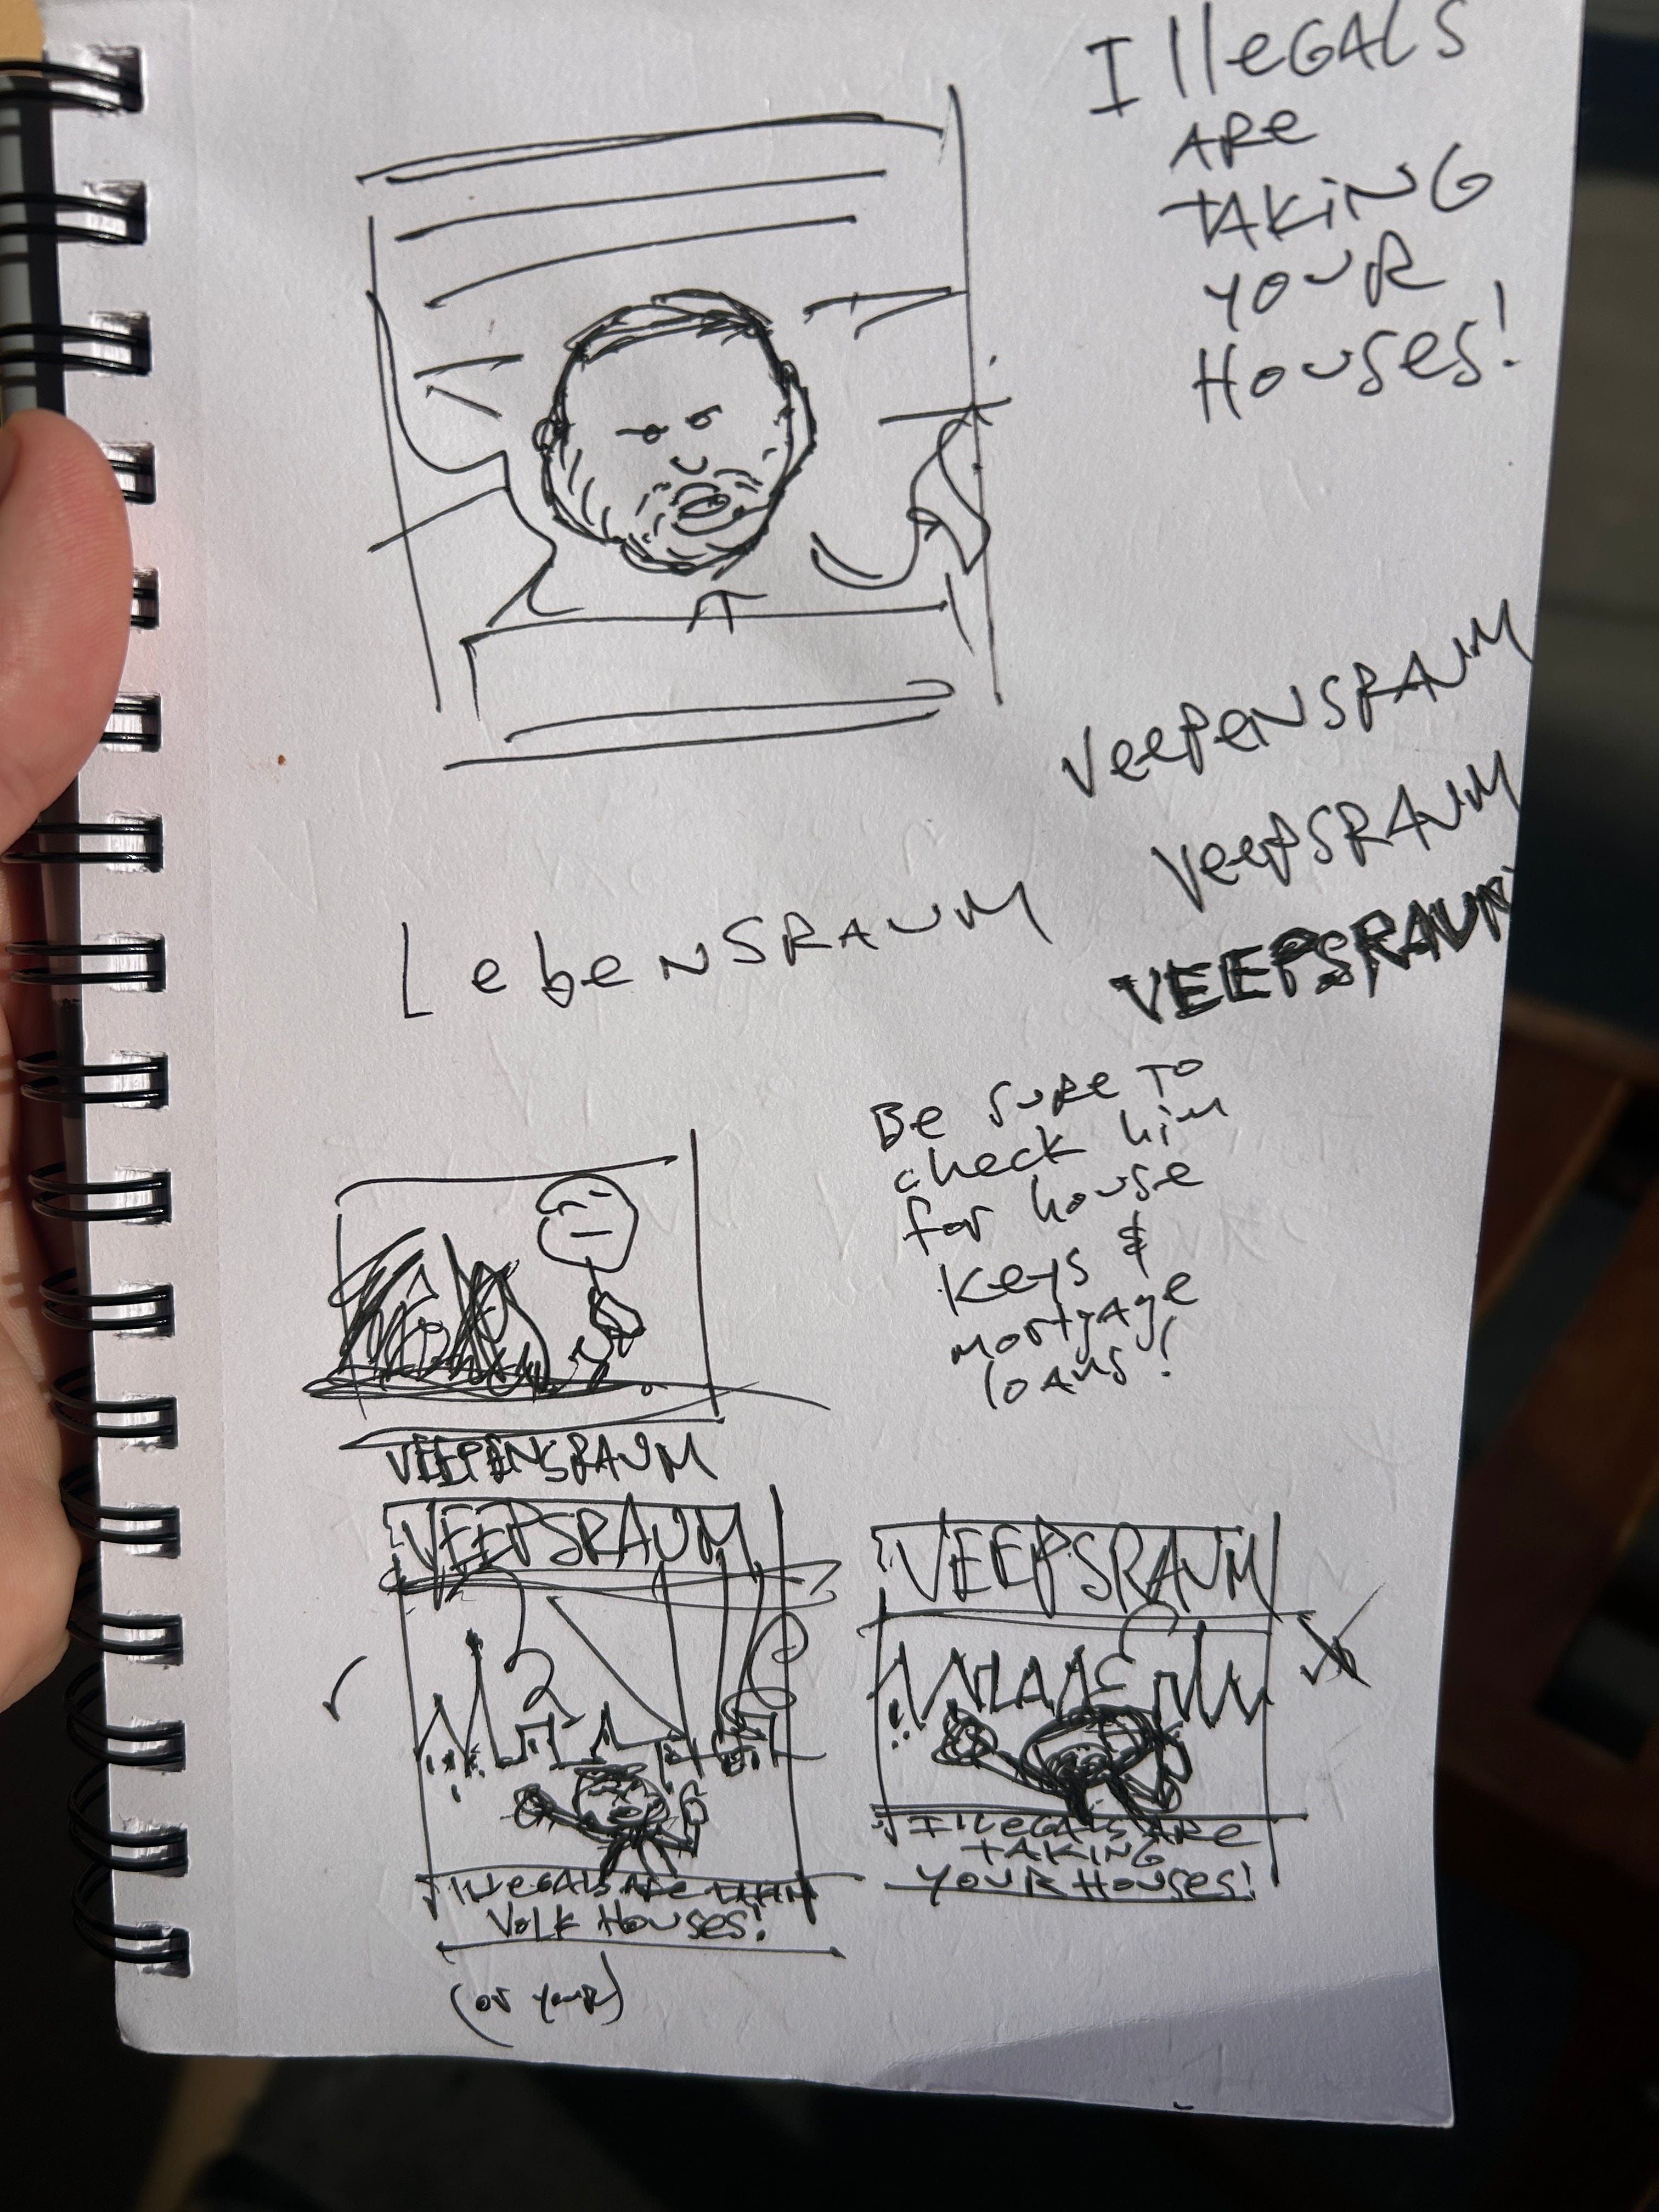 IlleGALS
ARe
TAKiNG
YOUR
HOUSES!
VeePeNSRAUM
VeePSRAUM
VEEPSRAUM
LebeNSRAUM
Be SURe TO
check him
for house
Keys &
mortgage
loans!
VEEPENSRAUM
VEEPSRAUM
IllEGALS ARe
VOLK HOUSES!
(or YOUR)
VEEPSRAUM
IlleGALS ARe
TAKING
YOUR HOUSES!